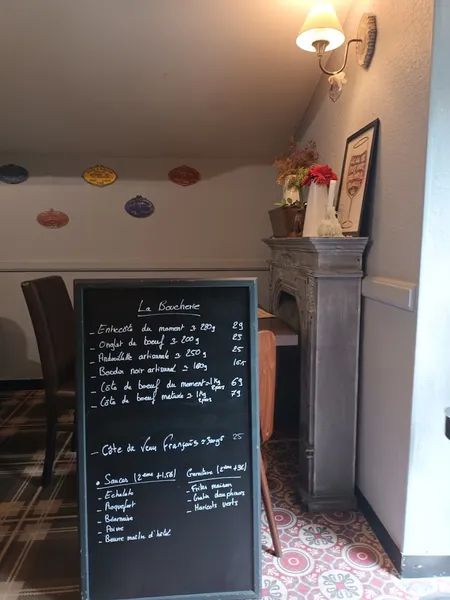 La Boucherie
- Entrecôte du moment > 280g 29
- Onglet de boeuf = 200g 23
- Andouillette artisanale = 250g 25
- Boudin noir artisanal = 180g
- Côte de boeuf du moment = 1Kg 69
- Côte de boeuf maturée = 1Kg 79
- Côte de veau français = 25
• Sauces (2ème +1,5€) Garniture (2ème +3€)
- Echalote - Frites maison
- Roquefort - Gratin dauphinois
- Béarnaise - Haricots verts
- Poivre
- Beurre maître d'hôtel